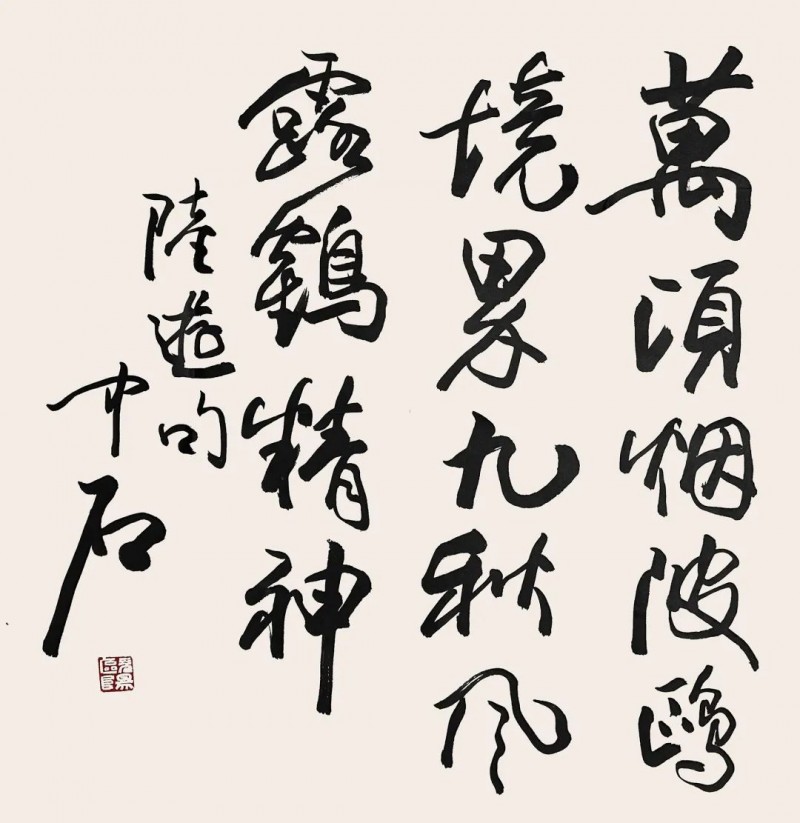 萬頃烟陂鷗
境界九秋風
露鶴精神
陸遊句
中石